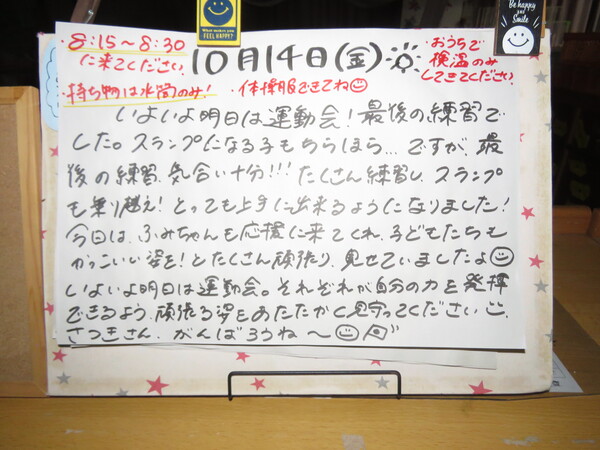 What makes you
FEEL HAPPY?
Be happy
and
Smile
・8:15〜8:30
に来てください。
・持ち物は水筒のみ!
10月14日(金)
・体操服できてね
・おうちで
検温のみ
してきてください。
いよいよ明日は運動会!最後の練習で
した。スランプになる子もちらほら…ですが、最
後の練習、気合い十分!!!たくさん練習し、スランプ
も乗り越え!とっても上手に出来るようになりました!
今日は、ふみちゃんも応援に来てくれ、子どもたちも
かっこいい姿を!とたくさん頑張り、見せていましたよ
いよいよ明日は運動会。それぞれが自分の力を発揮
できるよう、頑張る姿をあたたかく見守ってください。
さつきさん、がんばろうね〜